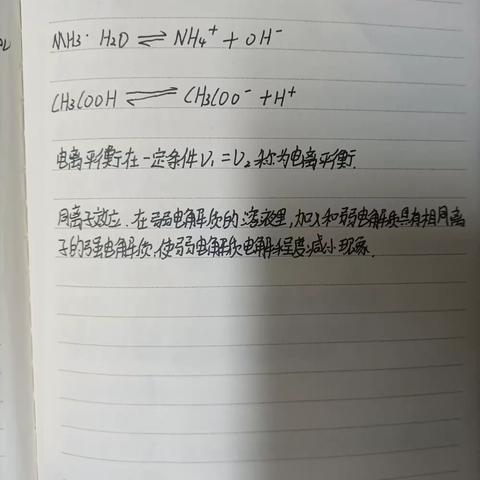 NH3· H2O ⇌ NH4⁺ + OH⁻
CH3COOH ⇌ CH3COO⁻ + H⁺
电离平衡:在一定条件V₁=V₂称为电离平衡.
同离子效应.在弱电解质的溶液里,加入和弱电解质具有相同离
子的强电解质,使弱电解质电解程度减小现象.